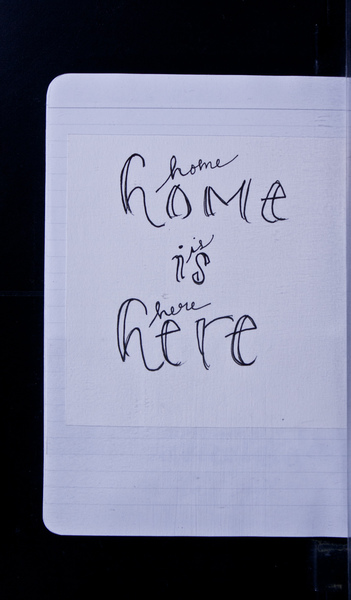 home
home
is
is
here
here